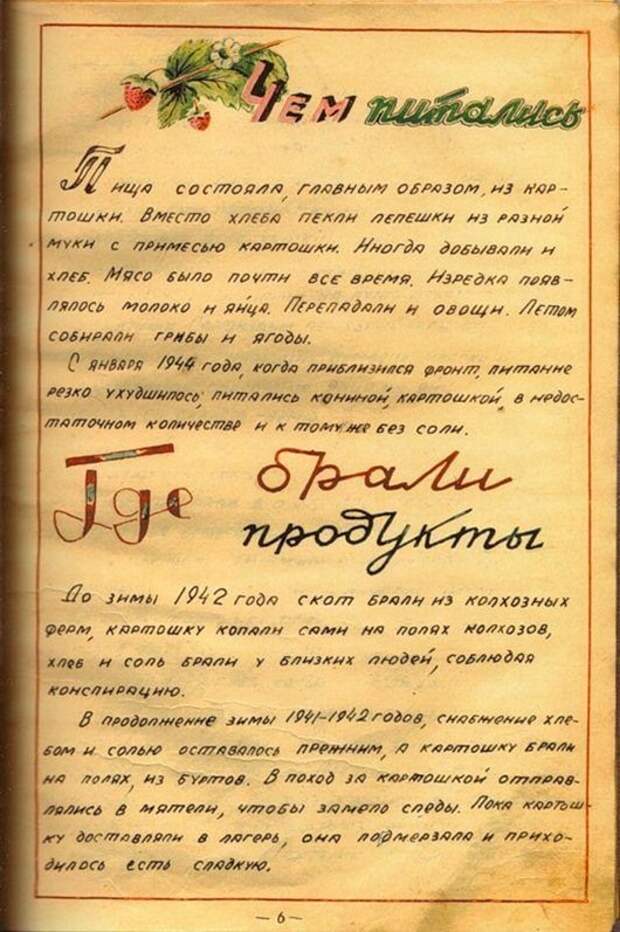 Чем питались
Пища состояла, главным образом, из кар-
тошки. Вместо хлеба пекли лепешки из разной
муки с примесью картошки. Иногда добывали и
хлеб. Мясо было почти все время. Изредка появ-
лялось молоко и яйца. Перепадали и овощи. Летом
собирали грибы и ягоды.
С января 1944 года, когда приблизился фронт, питание
резко ухудшилось, питались кониной, картошкой, в недос-
таточном количестве и к тому же без соли.
Где брали
продукты
До зимы 1942 года скот брали из колхозных
ферм, картошку копали сами на полях колхозов,
хлеб и соль брали у близких людей, соблюдая
конспирацию.
В продолжение зимы 1941-1942 годов, снабжение хле-
бом и солью оставалось прежним, а картошку брали
на полях, из буртов. В поход за картошкой отправ-
лялись в мятели, чтобы замело следы. Пока картош-
ку доставляли в лагерь, она подмерзала и прихо-
дилось есть сладкую.
— 6 —